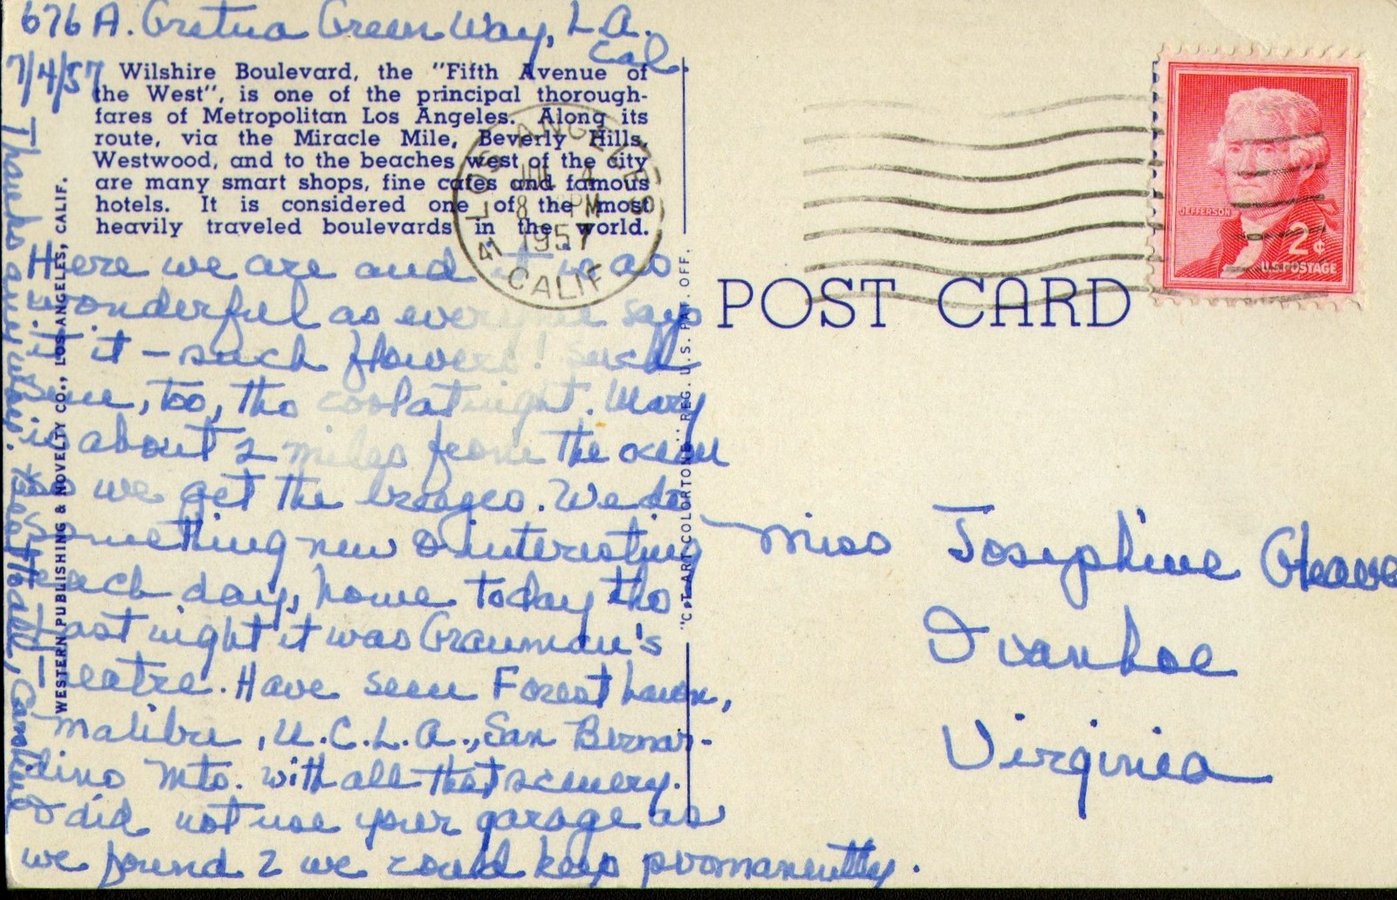 676 A. Gretna Green Way, L.A.
Cal.
7/4/57
Wilshire Boulevard, the "Fifth Avenue of
the West", is one of the principal thorough-
fares of Metropolitan Los Angeles. Along its
route, via the Miracle Mile, Beverly Hills,
Westwood, and to the beaches west of the city
are many smart shops, fine cafes and famous
hotels. It is considered one of the most
heavily traveled boulevards in the world.
Here we are and it is as
wonderful as everyone says
it is - such flowers! Such
sun, too, tho cool at night. Mary
is about 2 miles from the ocean
so we get the breezes. We do
something new & interesting
each day, home today tho
last night it was Grauman's
Theatre. Have seen Forest Lawn,
Malibu, U.C.L.A., San Bernar-
dino Mts. with all that scenery.
I did not use your garage as
we found 2 we could keep permanently.
Thanks anyway.
WESTERN PUBLISHING & NOVELTY CO., LOS ANGELES, CALIF.
"C.T. ART-COLORTONE" REG. U.S. PAT. OFF.
LOS ANGELES
JUL 4
8 PM
1957
41 CALIF
POST CARD
JEFFERSON
2¢
U.S. POSTAGE
Miss Josephine
Ivanhoe
Virginia